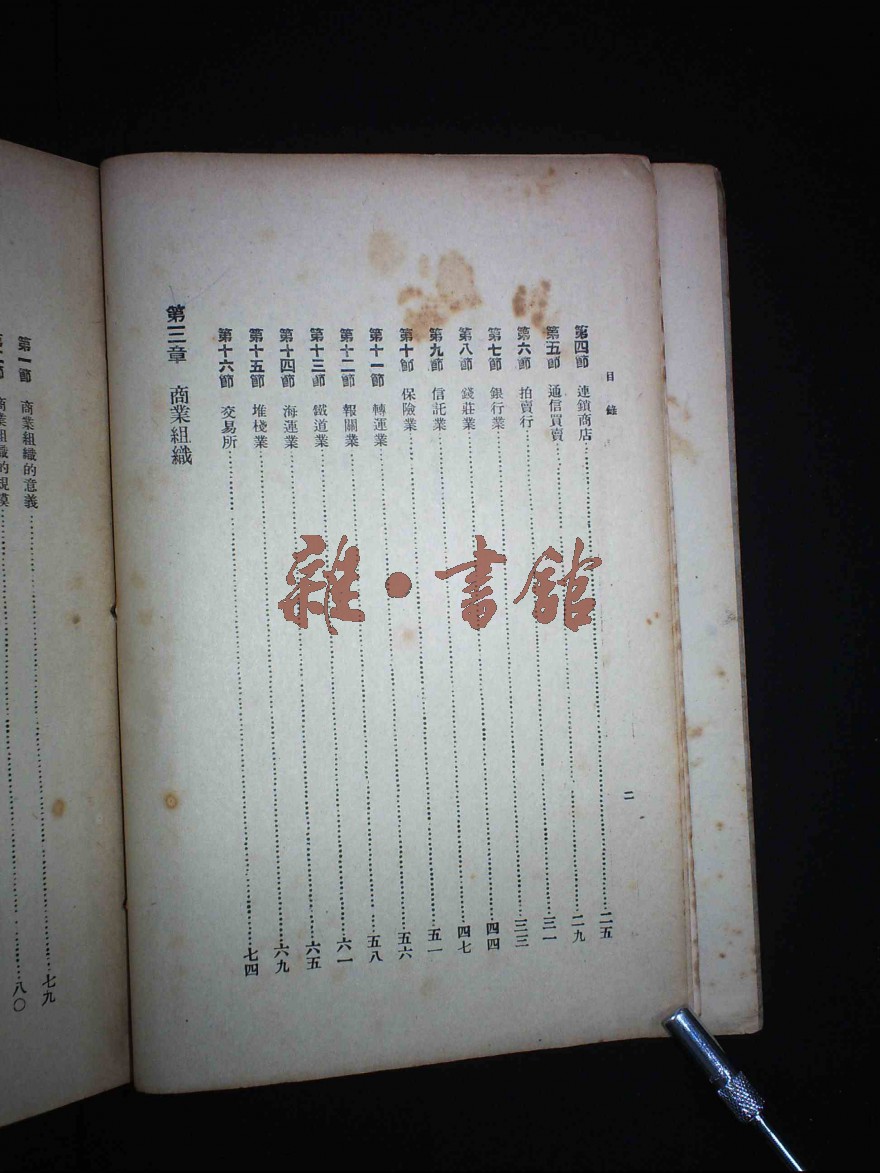 目錄
二
第四節 連鎖商店 二五
第五節 通信買賣 二九
第六節 拍賣行 三一
第七節 銀行業 三三
第八節 錢莊業 四四
第九節 信託業 四七
第十節 保險業 五一
第十一節 轉運業 五六
第十二節 報關業 五八
第十三節 鐵道業 六一
第十四節 海運業 六五
第十五節 堆棧業 六九
第十六節 交易所 七四
第三章 商業組織
第一節 商業組織的意義 七九
第二節 商業組織的規模 八〇
雜·書館